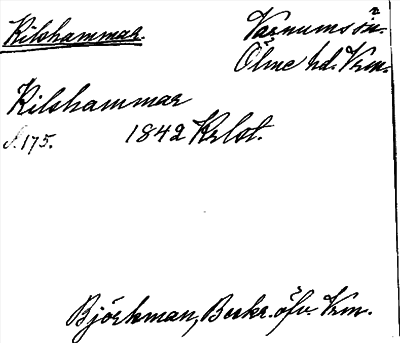 Kilshammar. Varnums sn.
Ölme hd. Vrm.
Kilshammar
S. 175. 1842 Krlst.
Björkman, Beskr. öfv. Vrm.